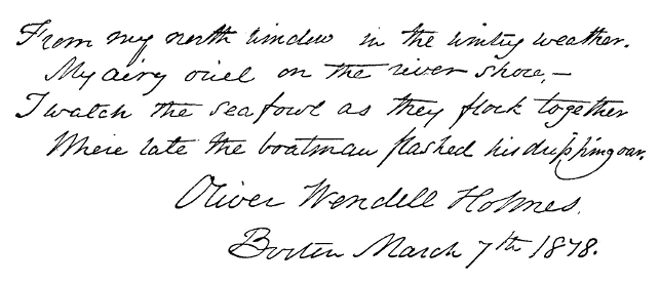 From my north window in the wintry weather.
My airy oriel on the river shore,—
I watch the sea fowl as they flock together
Where late the boatman flashed his dripping oar.
Oliver Wendell Holmes.
Boston March 7th 1878.